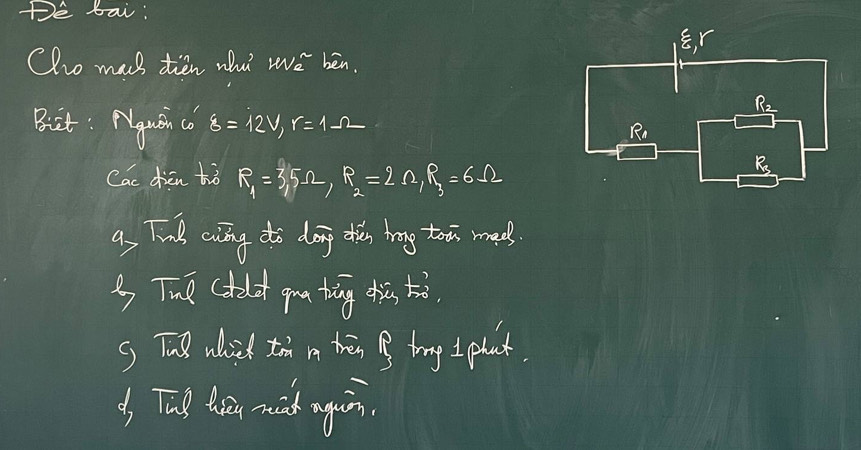 Đề bài:
Cho mạch điện như hình vẽ bên.
Biết: Nguồn có ξ = 12V, r = 1Ω
Các điện trở R₁ = 3,5Ω, R₂ = 2Ω, R₃ = 6Ω
a, Tính cường độ dòng điện trong toàn mạch.
b, Tính cđdđ qua từng điện trở.
c, Tính nhiệt tỏa ra trên R₃ trong 1 phút.
d, Tính hiệu suất nguồn.
ξ, r
R₂
R₁
R₃